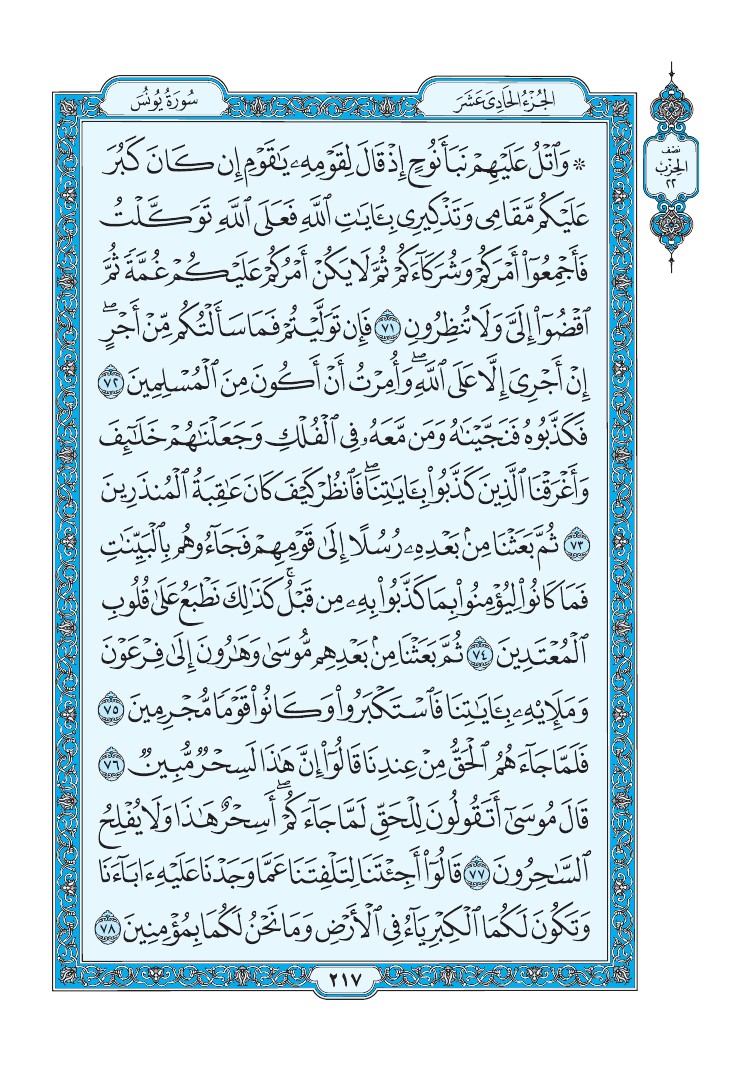 الجُزْءُ الحَادِىَ عَشَرَ
سُورَةُ يُونُسَ
نصف
الحِزْب
٢٢
۞ وَٱتۡلُ عَلَيۡهِمۡ نَبَأَ نُوحٍ إِذۡ قَالَ لِقَوۡمِهِۦ يَٰقَوۡمِ إِن كَانَ كَبُرَ
عَلَيۡكُم مَّقَامِي وَتَذۡكِيرِي بِـَٔايَٰتِ ٱللَّهِ فَعَلَى ٱللَّهِ تَوَكَّلۡتُ
فَأَجۡمِعُوٓاْ أَمۡرَكُمۡ وَشُرَكَآءَكُمۡ ثُمَّ لَا يَكُنۡ أَمۡرُكُمۡ عَلَيۡكُمۡ غُمَّةٗ ثُمَّ
ٱقۡضُوٓاْ إِلَيَّ وَلَا تُنظِرُونِ ٧١ فَإِن تَوَلَّيۡتُمۡ فَمَا سَأَلۡتُكُم مِّنۡ أَجۡرٍۖ
إِنۡ أَجۡرِيَ إِلَّا عَلَى ٱللَّهِۖ وَأُمِرۡتُ أَنۡ أَكُونَ مِنَ ٱلۡمُسۡلِمِينَ ٧٢
فَكَذَّبُوهُ فَنَجَّيۡنَٰهُ وَمَن مَّعَهُۥ فِي ٱلۡفُلۡكِ وَجَعَلۡنَٰهُمۡ خَلَٰٓئِفَ
وَأَغۡرَقۡنَا ٱلَّذِينَ كَذَّبُواْ بِـَٔايَٰتِنَاۖ فَٱنظُرۡ كَيۡفَ كَانَ عَٰقِبَةُ ٱلۡمُنذَرِينَ
٧٣ ثُمَّ بَعَثۡنَا مِنۢ بَعۡدِهِۦ رُسُلًا إِلَىٰ قَوۡمِهِمۡ فَجَآءُوهُم بِٱلۡبَيِّنَٰتِ
فَمَا كَانُواْ لِيُؤۡمِنُواْ بِمَا كَذَّبُواْ بِهِۦ مِن قَبۡلُۚ كَذَٰلِكَ نَطۡبَعُ عَلَىٰ قُلُوبِ
ٱلۡمُعۡتَدِينَ ٧٤ ثُمَّ بَعَثۡنَا مِنۢ بَعۡدِهِم مُّوسَىٰ وَهَٰرُونَ إِلَىٰ فِرۡعَوۡنَ
وَمَلَإِيْهِۦ بِـَٔايَٰتِنَا فَٱسۡتَكۡبَرُواْ وَكَانُواْ قَوۡمٗا مُّجۡرِمِينَ ٧٥
فَلَمَّا جَآءَهُمُ ٱلۡحَقُّ مِنۡ عِندِنَا قَالُوٓاْ إِنَّ هَٰذَا لَسِحۡرٞ مُّبِينٞ ٧٦
قَالَ مُوسَىٰٓ أَتَقُولُونَ لِلۡحَقِّ لَمَّا جَآءَكُمۡۖ أَسِحۡرٌ هَٰذَا وَلَا يُفۡلِحُ
ٱلسَّٰحِرُونَ ٧٧ قَالُوٓاْ أَجِئۡتَنَا لِتَلۡفِتَنَا عَمَّا وَجَدۡنَا عَلَيۡهِ ءَابَآءَنَا
وَتَكُونَ لَكُمَا ٱلۡكِبۡرِيَآءُ فِي ٱلۡأَرۡضِ وَمَا نَحۡنُ لَكُمَا بِمُؤۡمِنِينَ ٧٨
٢١٧